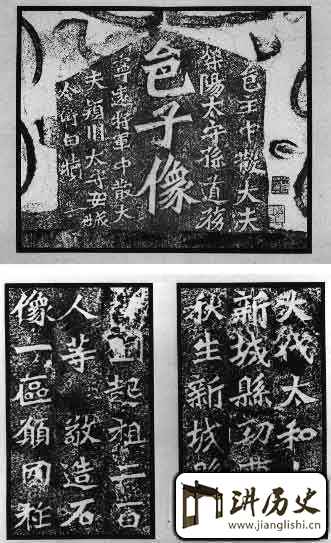 邑主中散大夫
滎陽太守孫道務
邑子像
寧遠將軍中散大
夫潁川太守安城
令衛白犢
大代太和
新城縣功曹
秋生新城縣
劉起祖二百
人等敬造石
像一區願國祚
讲历史
www.jianglishi.cn